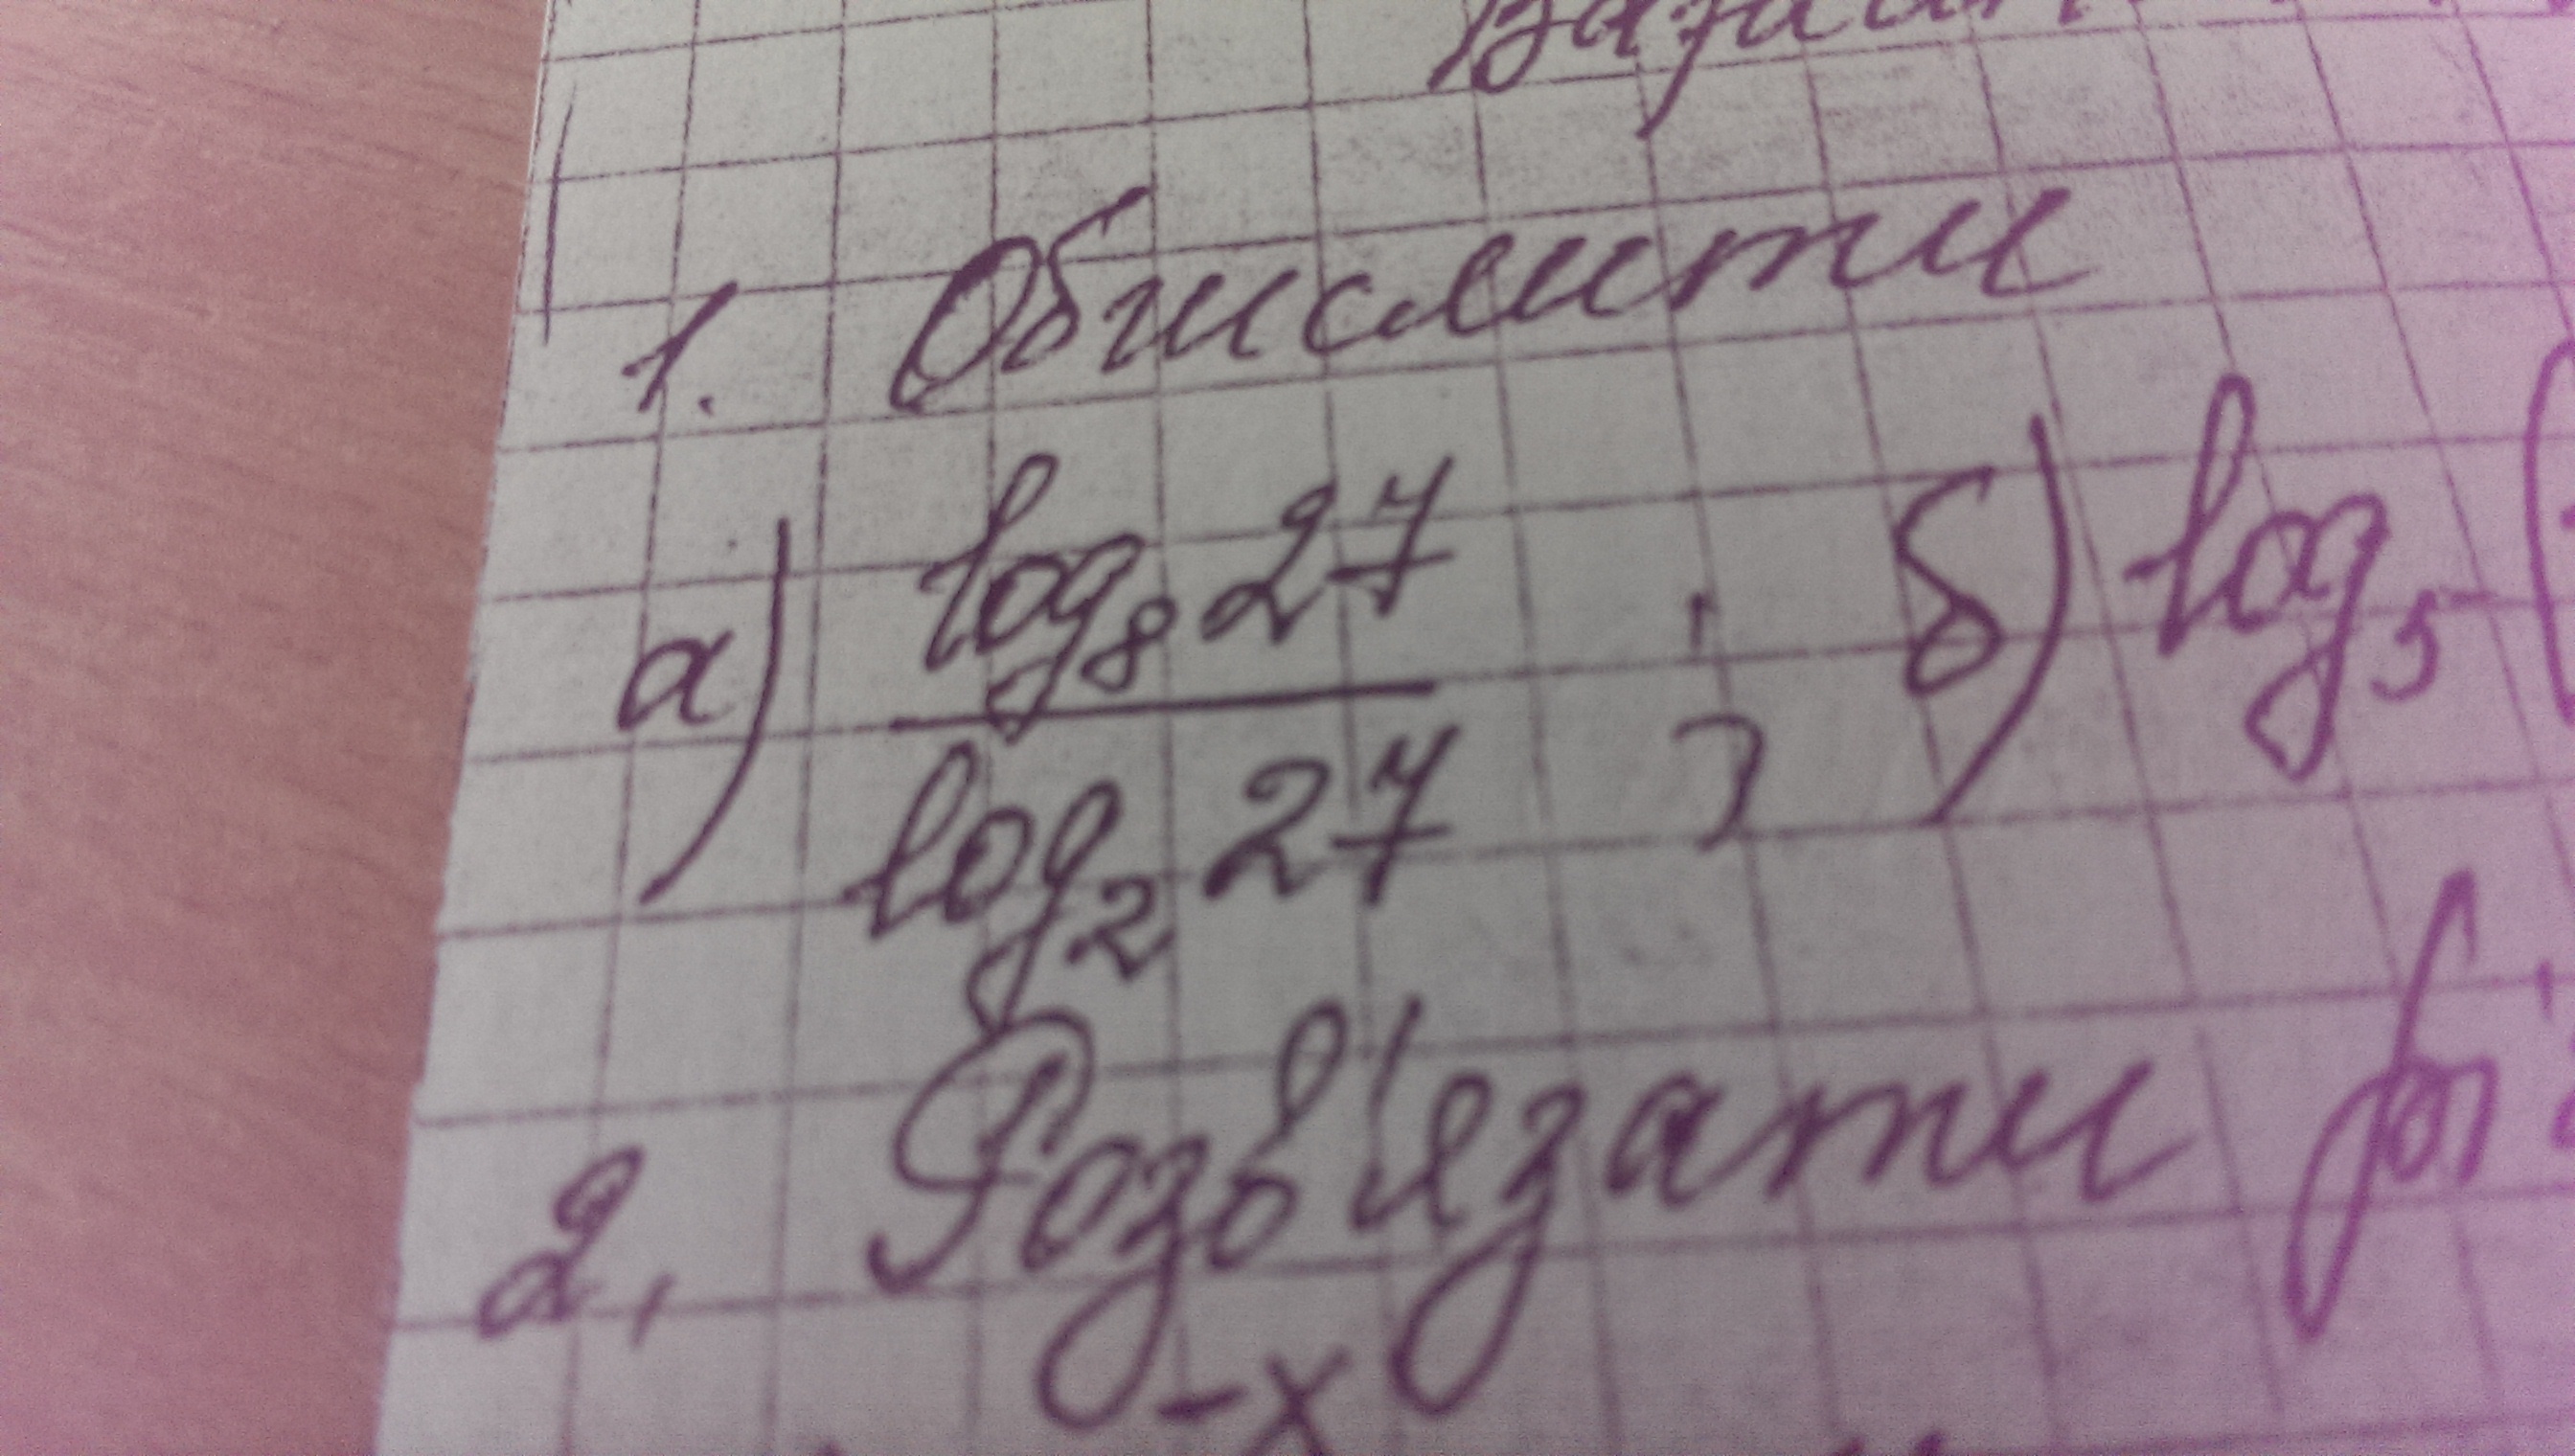 Варіант
1. Обчислити
а) log₈27 / log₂27 ; б) log₅(
2. Розв'язати
-x